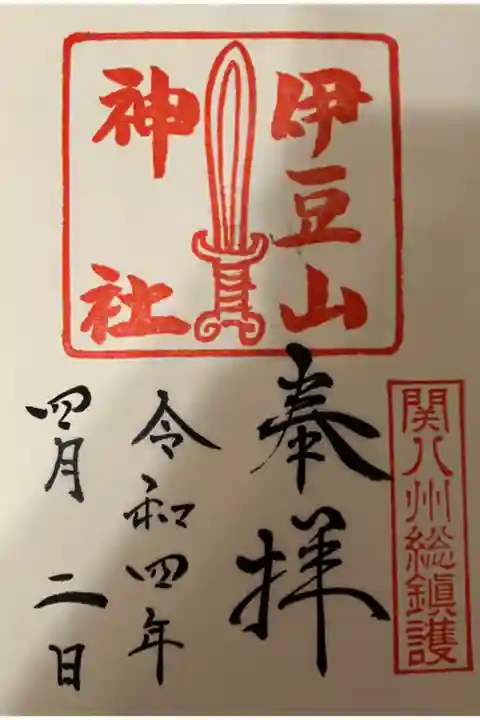 伊豆山
神社
関八州総鎮護
奉拝
令和四年
四月二日